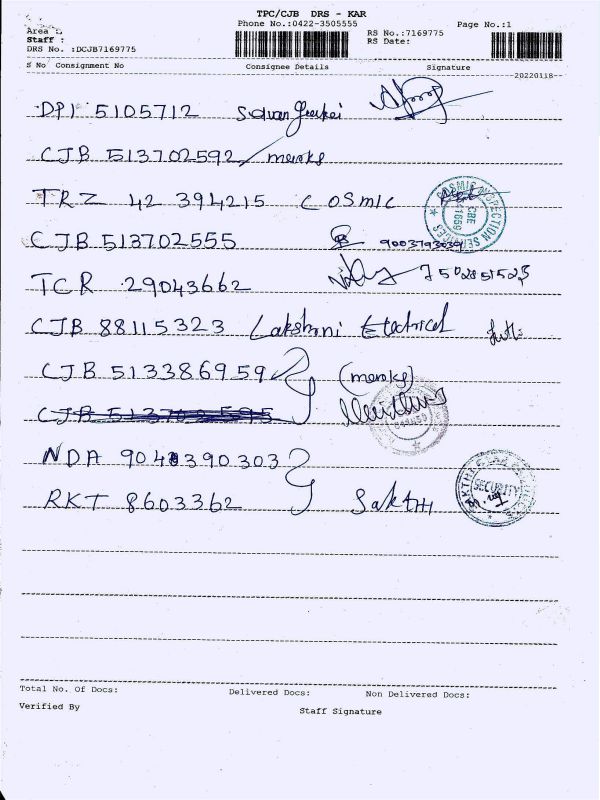 TPC/CJB DRS - KAR
Phone No.:0422-3505555 Page No.:1
Area
Staff : RS No.:7169775
DRS No. :DCJB7169775 RS Date:
S No Consignment No Consignee Details Signature
20220118
DPI 5105712
CJB 513702592
TRZ 42 394215 COSMIC
COSMIC INSPECTION SERVICES CBE 41659
CJB 513702555 9003793039
TCR 29043662
CJB 88115323 Lakshmi Electrical
CJB 513386959
NDA 9048390303
RKT 8603362 SAKTHI
SECURITY
Total No. Of Docs: Delivered Docs: Non Delivered Docs:
Verified By Staff Signature